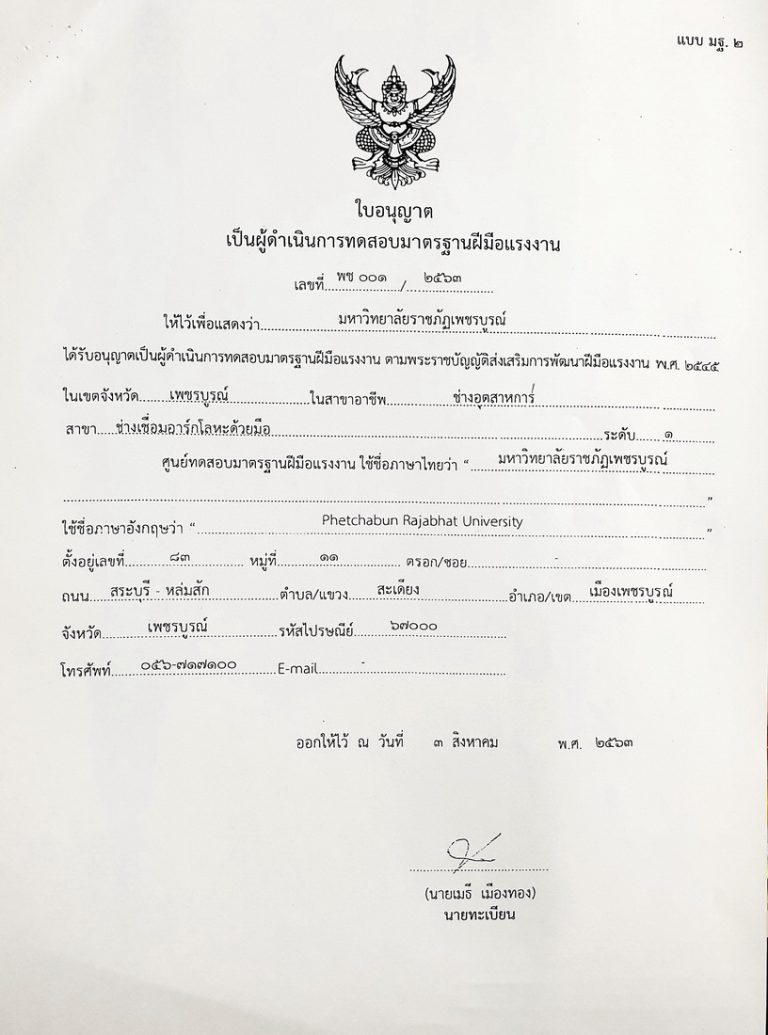 แบบ มฐ. ๒
ใบอนุญาต
เป็นผู้ดำเนินการทดสอบมาตรฐานฝีมือแรงงาน
เลขที่ พช ๐๐๑ / ๒๕๖๓
ให้ไว้เพื่อแสดงว่า มหาวิทยาลัยราชภัฏเพชรบูรณ์
ได้รับอนุญาตเป็นผู้ดำเนินการทดสอบมาตรฐานฝีมือแรงงาน ตามพระราชบัญญัติส่งเสริมการพัฒนาฝีมือแรงงาน พ.ศ. ๒๕๔๕
ในเขตจังหวัด เพชรบูรณ์ ในสาขาอาชีพ ช่างอุตสาหการ์
สาขา ช่างเชื่อมอาร์กโลหะด้วยมือ ระดับ ๑
ศูนย์ทดสอบมาตรฐานฝีมือแรงงาน ใช้ชื่อภาษาไทยว่า “ มหาวิทยาลัยราชภัฏเพชรบูรณ์
”
ใช้ชื่อภาษาอังกฤษว่า “ Phetchabun Rajabhat University ”
ตั้งอยู่เลขที่ ๘๓ หมู่ที่ ๑๑ ตรอก/ซอย -
ถนน สระบุรี - หล่มสัก ตำบล/แขวง สะเดียง อำเภอ/เขต เมืองเพชรบูรณ์
จังหวัด เพชรบูรณ์ รหัสไปรษณีย์ ๖๗๐๐๐
โทรศัพท์ ๐๕๖-๗๑๗๑๐๐ E-mail -
ออกให้ไว้ ณ วันที่ ๓ สิงหาคม พ.ศ. ๒๕๖๓
(นายเมธี เมืองทอง)
นายทะเบียน